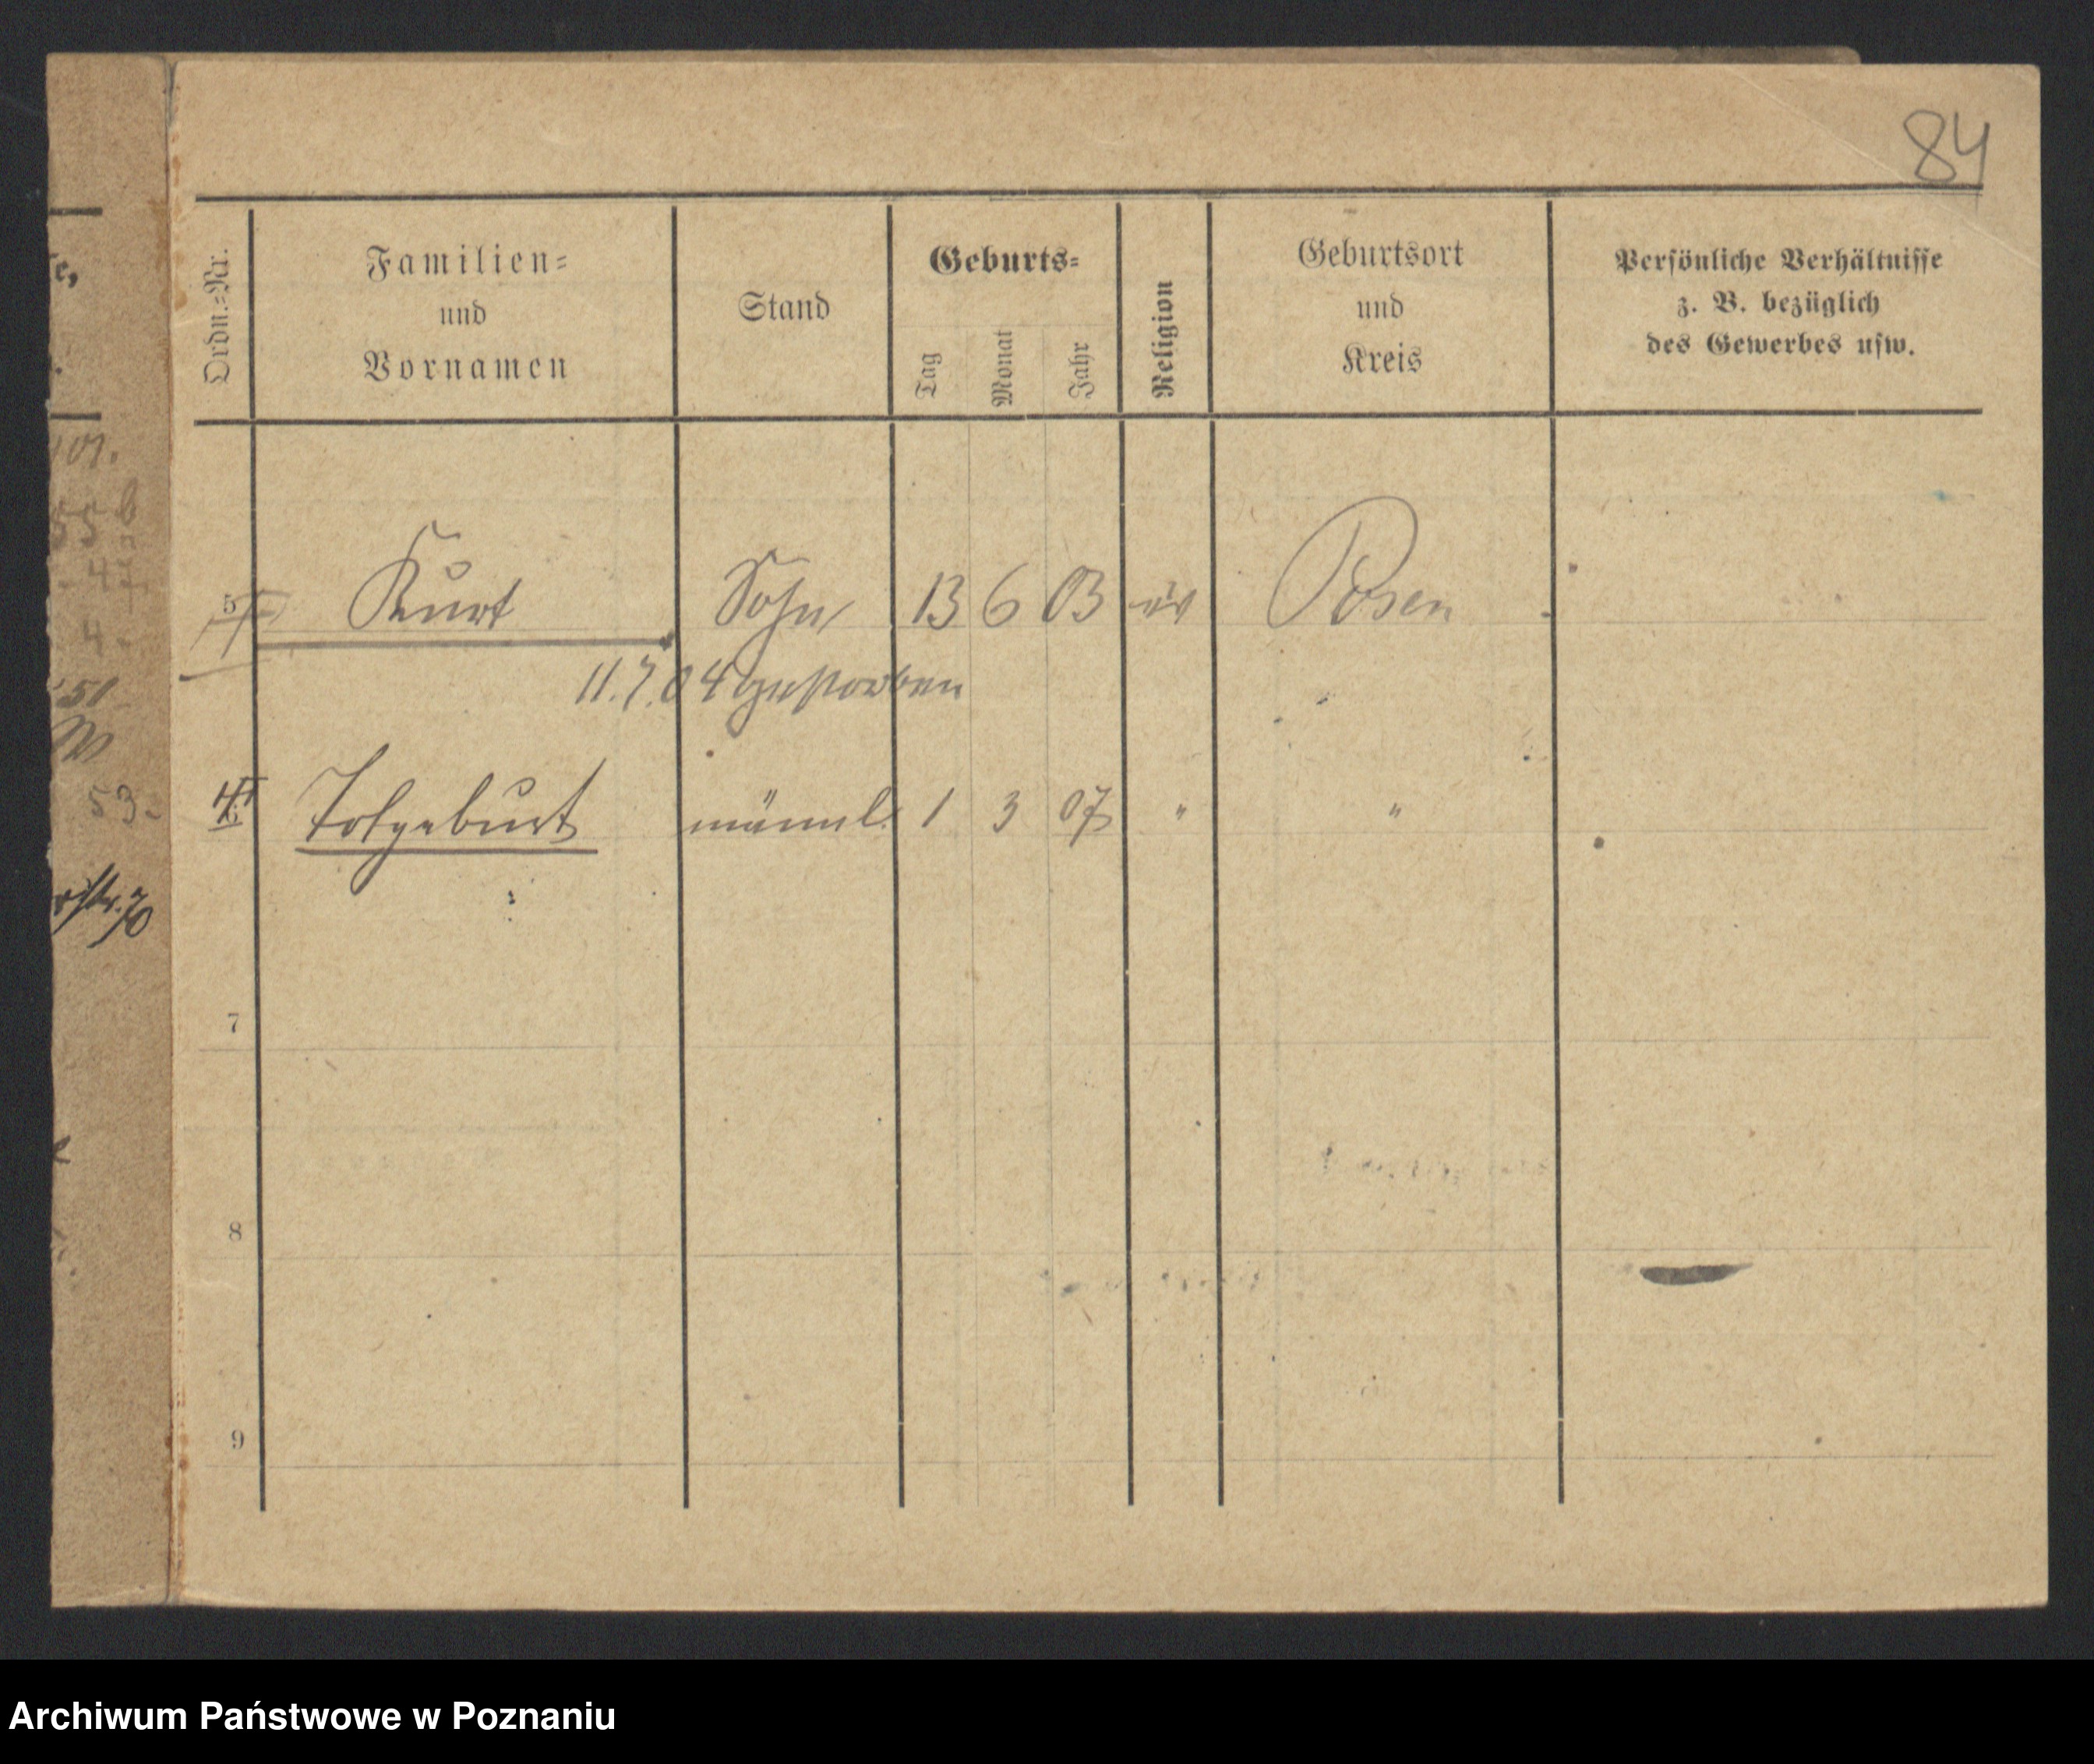 84
Ordn.-Nr.
Familien-
und
Vornamen
Stand
Geburts-
Tag
Monat
Jahr
Religion
Geburtsort
und
Kreis
Persönliche Verhältnisse
z. B. bezüglich
des Gewerbes usw.
5 Kurt Sohn 13 6 03 ev Posen
11.7.04 gestorben
Totgeburt männl. 1 3 07 " "
7
8
9
53.
Archiwum Państwowe w Poznaniu